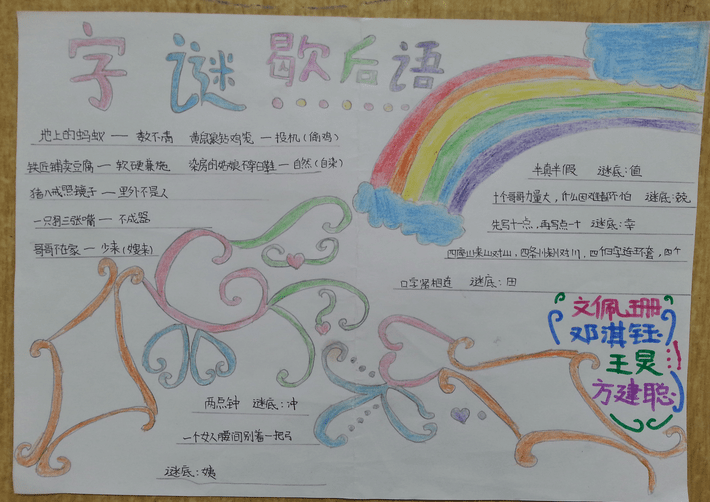 字谜歇后语
地上的蚂蚁 — 数不清
黄鼠狼钻鸡笼 — 投机(偷鸡)
铁匠铺卖豆腐 — 软硬兼施
染房的姑娘不穿白鞋 — 自然(自染)
猪八戒照镜子 — 里外不是人
一只碗三张嘴 — 不成器
哥哥不在家 — 少来(嫂来)
半真半假 谜底:值
十个哥哥力量大,什么困难都不怕 谜底:兢
先写十一点,再写点一十 谜底:幸
四座山头山对山,四条小溪川对川,四个日字连环套,四个
口字紧相连 谜底:田
文佩珊
邓淇钰
王昊
方建聪
两点钟 谜底:冲
一个女人腰间别着一把弓
谜底:姨